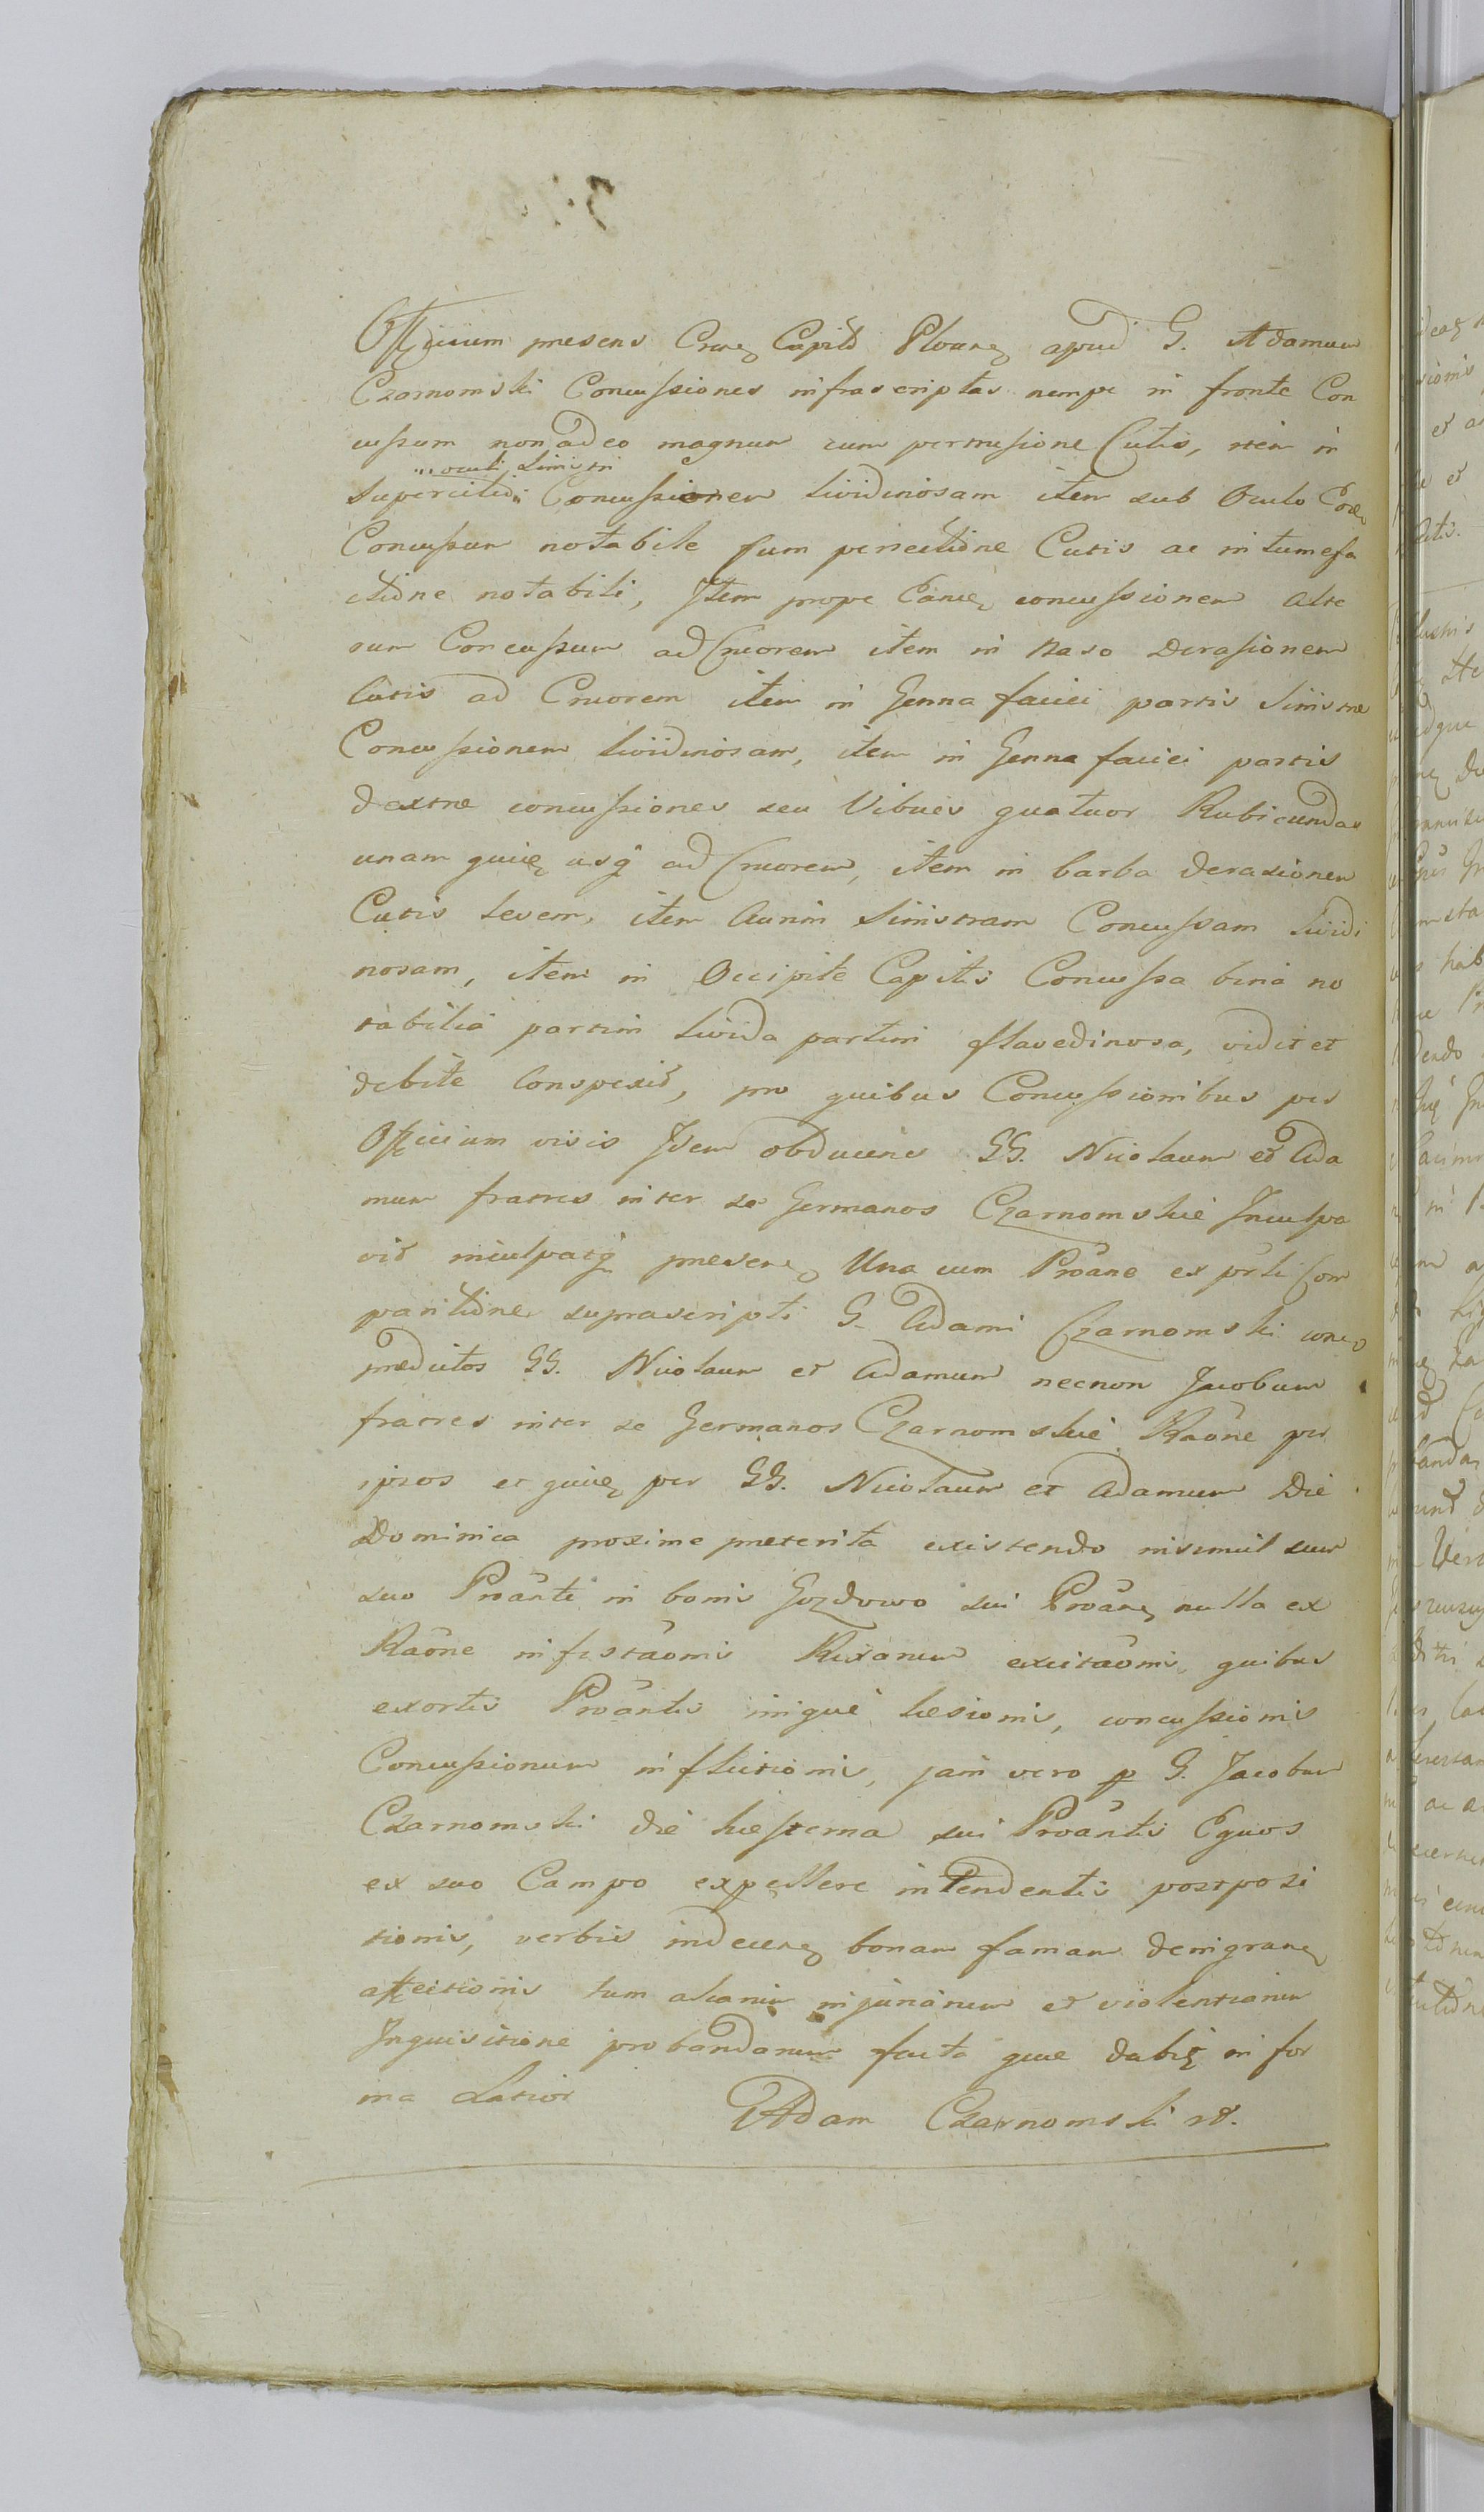 Officium presens Crense Capitle Plocense apud G. Adamum
Czarnomski Concussiones infrascriptas nempe in fronte Con
cussum non adeo magnum cum pertusione Cutis, item in
oculi sinistri
Supercilio Concussionem lividinosam item sub Oculo Eodem
Concussum notabile cum periectione Cutis ac intumefa
ctione notabili, Item prope Eande concussionem alte
rum Concussum ad Cruorem item in Naso Derasionem
Cutis ad Cruorem item in Genna faciei partis Sinistre
Concussionem lividinosam, item in Genna faciei partis
dextre concussiones seu Vibices quatuor Rubicundas
unam quidem usq ad Cruorem, item in barba derasionem
Cutis levem, item Aurim Sinistram Concussam lividi
nosam, item in Occipite Capitis Concussa bina no
tabilia partim livida partim flavedinosa, vidit et
debite Conspexit, pro quibus Concussionibus per
Officium visis Idem obducens GG. Nicolaum et Ada
mum fratres inter se Germanos Czarnomskie Inculpa
vit inculpatq presente Una cum Proâne ex prti Com
paritione suprascripti G. Adami Czarnomski con
predictos GG. Nicolaum et Adamum necnon Jacobum
fratres inter se Germanos Czarnomskie Raône per
ipsos et quidem per GG. Nicolaum et Adamum Die
Dominica proxime preterita existendo insimul cum
suo Proânte in bonis Gozdowo sui Proân nulla ex
Raône infestaônis Rixarum excitaônis, quibus
exortis Proântis inique lesionis, concussionis
Concussionum inflictionis, jam vero p G. Jacobum
Czarnomski die hesterna sui Proântis Equos
ex suo Campo expellere intendentis postposi
tionis, verbis indecen bonam famam denigran
affectionis tum aliarum injuriarum et violentiarum
Inquisitione probandarum facta que dabit in for
ma Latior
Adam Czarnomski